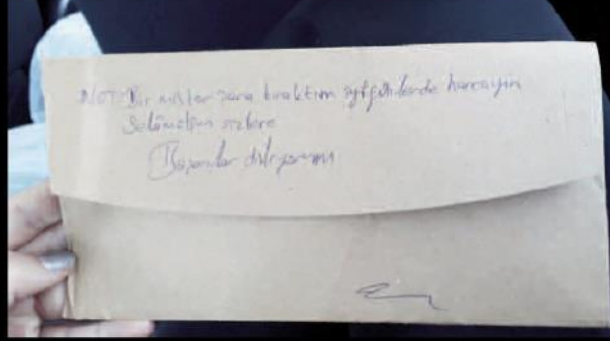 NOT: Bir miktar para bıraktım iyi günlerde harcayın
Selâmetle sizlere
Başarılar diliyorum